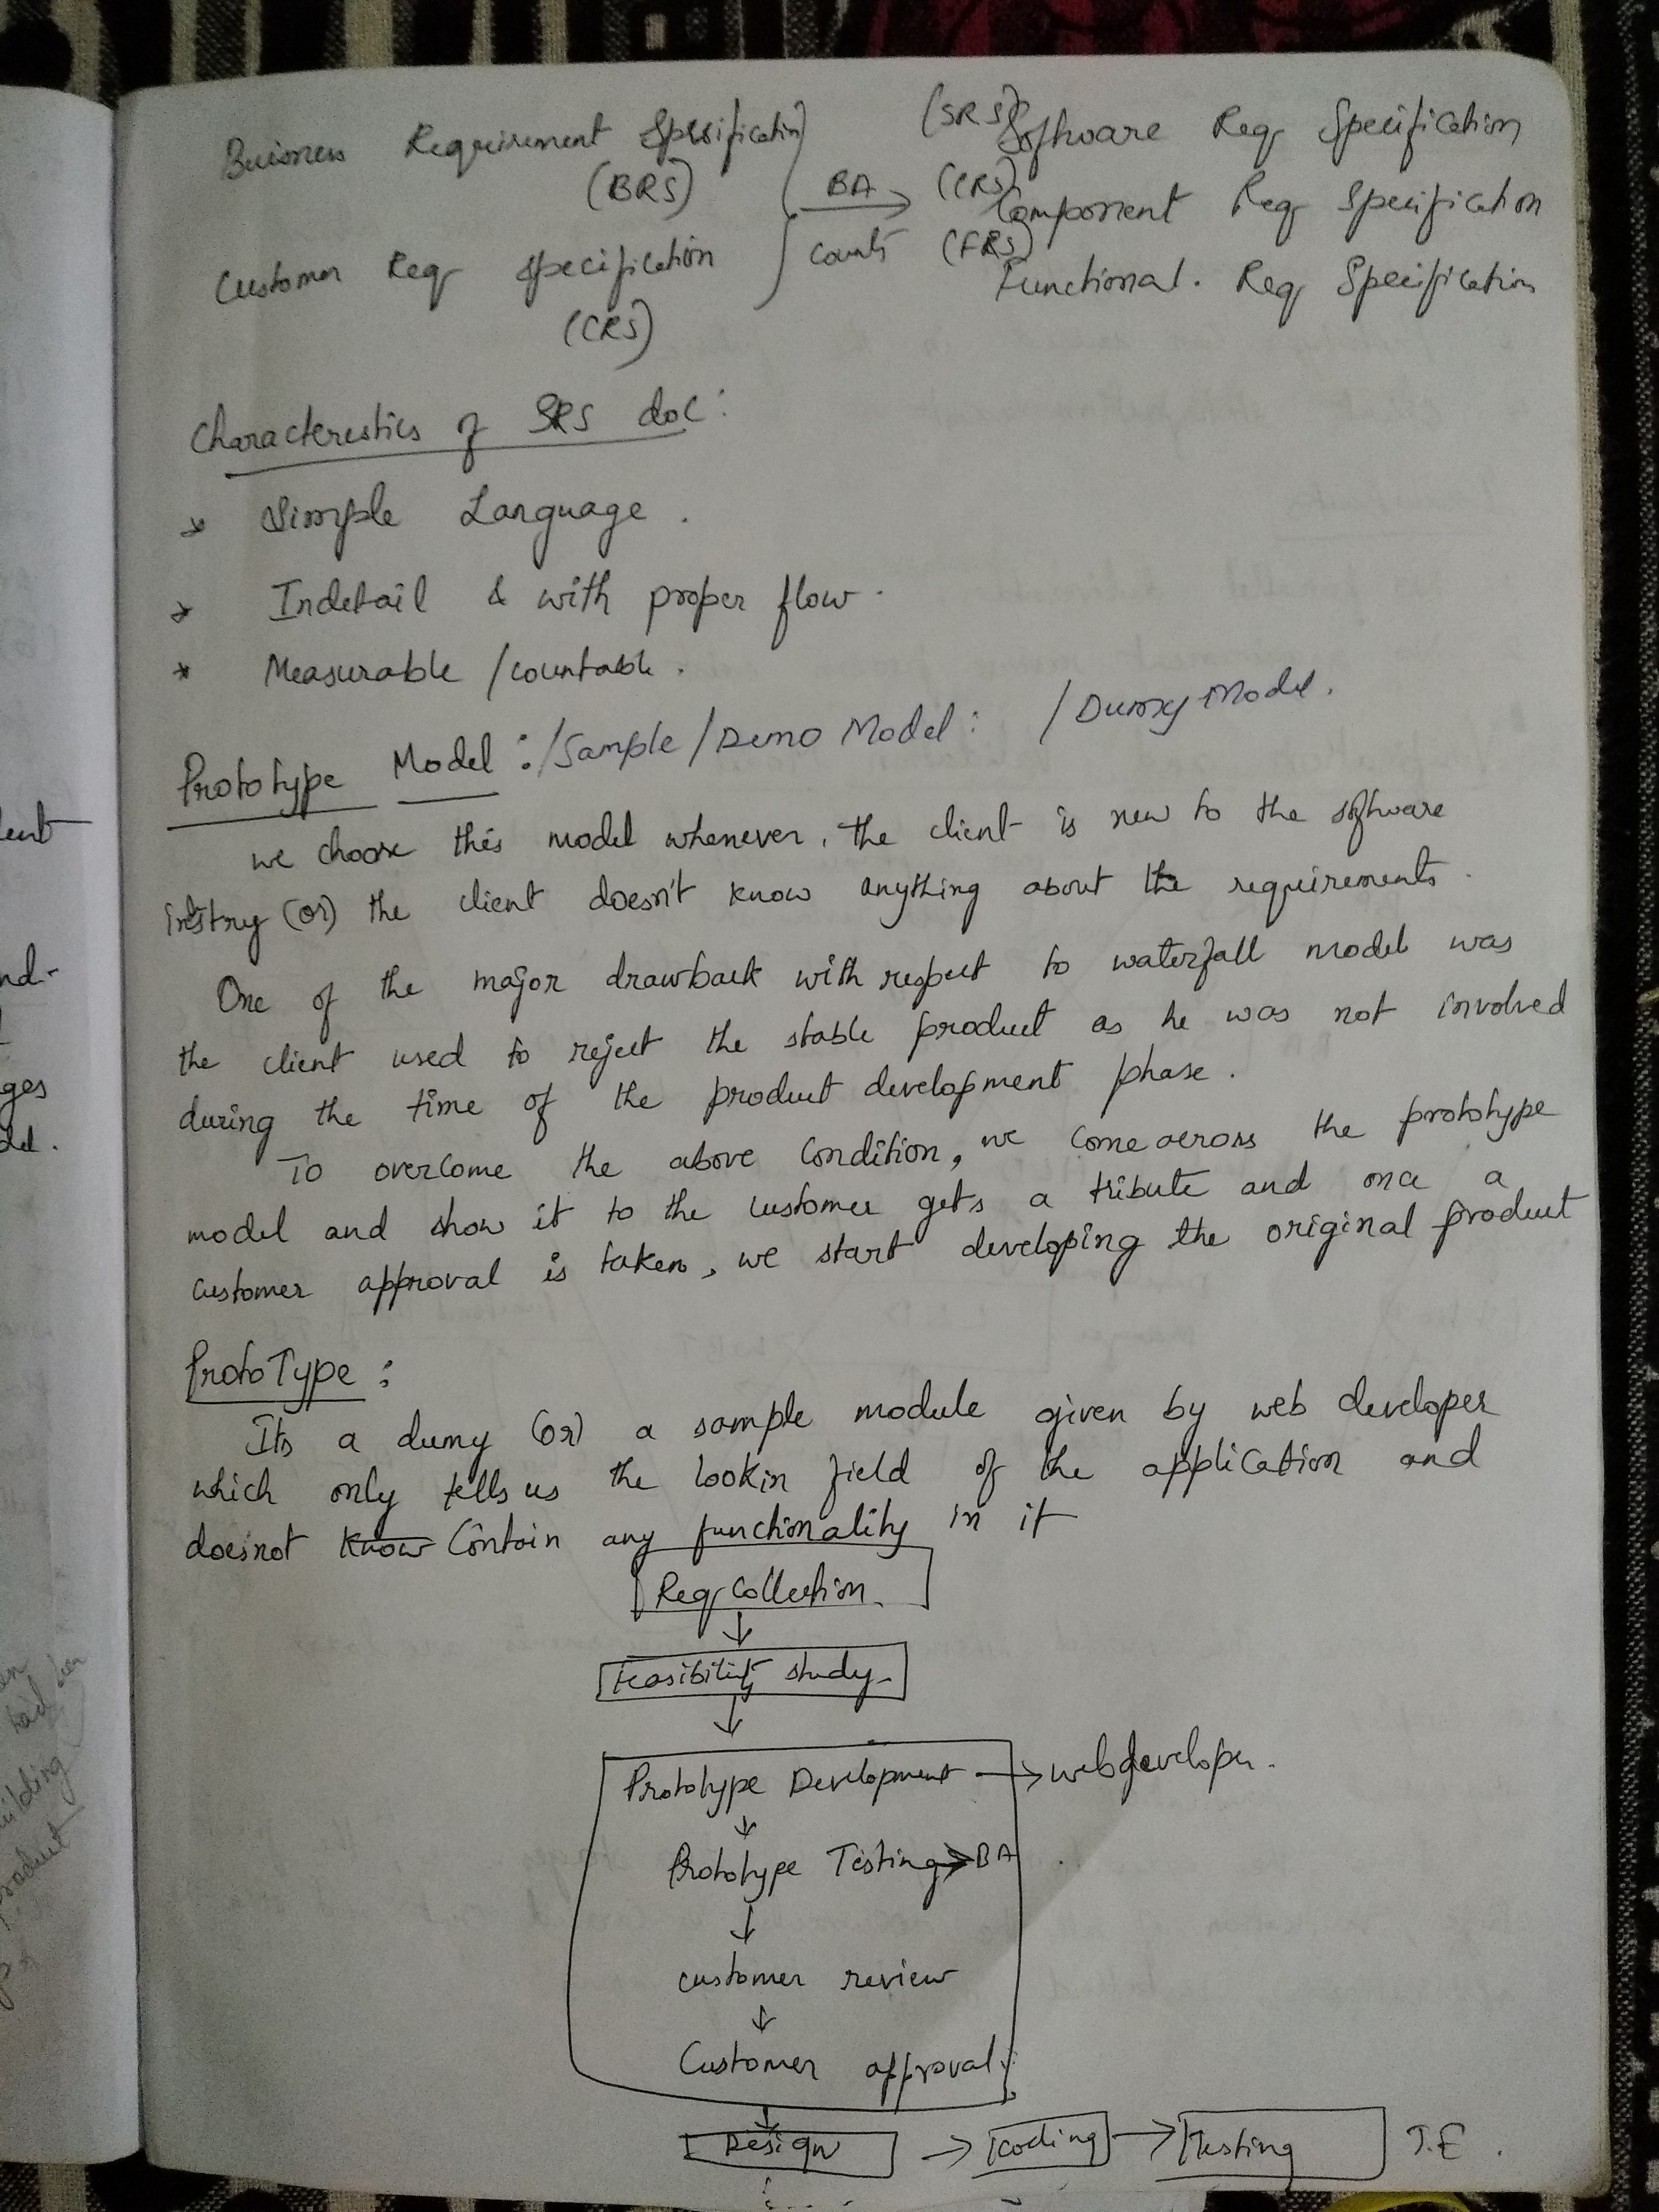 Buisness Requirement Spesification (SRS) Software Req Specification
(BRS) BA (CRS) Component Req Specification
Customer Req Specification (FRS) Functional. Req Specification
(CRS)
Characterestics of SRS doc:
* Simple Language.
* Indetail & with proper flow.
* Measurable / countable.
Prototype Model: /Sample /Demo Model: /Dumy Model.
we choose this model whenever, the client is new to the software
(or) the client doesn't know anything about the requirements.
One of the major drawback with respect to waterfall model was
the client used to reject the stable product as he was not involved
during the time of the product development phase.
To overcome the above condition, we come across the prototype
model and show it to the customer gets a tribute and once a
customer approval is taken, we start developing the original product
ProtoType:
Its a dumy (or) a sample module given by web developer
which only tells us the lookin field of the application and
doesnot know Contain any functionality in it
Req Collection.
Feasibility study
Prototype Development → webdeveloper.
Prototype Testing → BA
customer review
Customer approval
Design → Coding → Testing T.E.
lent
nd-
ges
del.
uilding
product